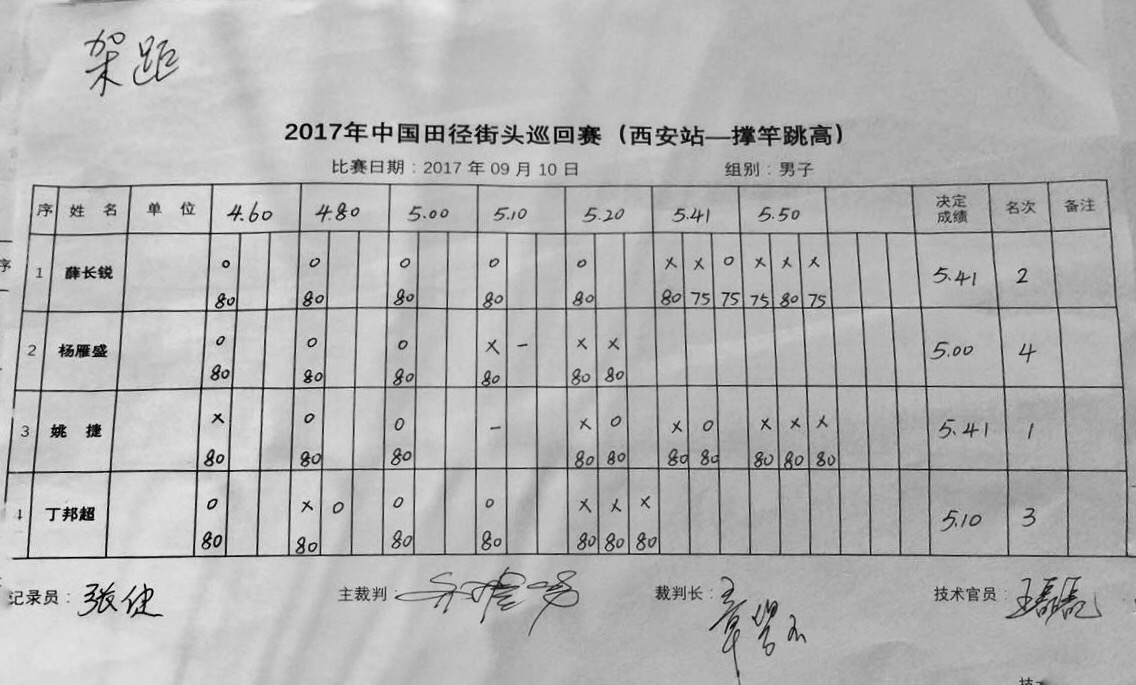 架距
2017年中国田径街头巡回赛（西安站—撑竿跳高）
比赛日期：2017 年 09 月 10 日 组别：男子
序 姓 名 单 位 4.60 4.80 5.00 5.10 5.20 5.41 5.50 决定成绩 名次 备注
序
1 薛长锐 o o o o o x x o x x x 5.41 2
80 80 80 80 80 80 75 75 75 80 75
2 杨雁盛 o o o x - x x 5.00 4
80 80 80 80 80 80
3 姚 捷 x o o - x o x o x x x 5.41 1
80 80 80 80 80 80 80 80 80 80
丁邦超 o x o o o x x x 5.10 3
80 80 80 80 80 80 80
纪录员：张健 主裁判： 裁判长： 技术官员：